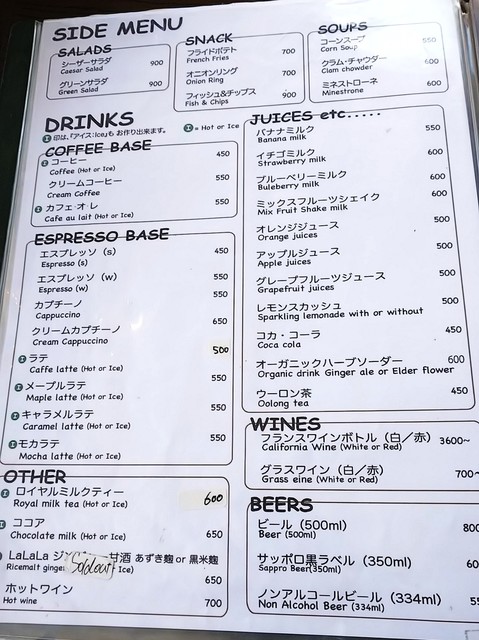 SIDE MENU
SALADS
シーザーサラダ 900
Caesar Salad
グリーンサラダ 900
Green Salad
SNACK
フライドポテト 700
French Fries
オニオンリング 700
Onion Ring
フィッシュ&チップス 900
Fish & Chips
SOUPS
コーンスープ 550
Corn Soup
クラム・チャウダー 600
Clam chowder
ミネストローネ 600
Minestrone
DRINKS
I 印は、「アイス:Ice」も お作り出来ます。
I = Hot or Ice
COFFEE BASE
I コーヒー 450
Coffee (Hot or Ice)
クリームコーヒー 550
Cream Coffee
I カフェ・オ・レ 550
Cafe au lait (Hot or Ice)
ESPRESSO BASE
エスプレッソ (s) 450
Espresso (s)
エスプレッソ (w) 550
Espresso (w)
カプチーノ 550
Cappuccino
クリームカプチーノ 650
Cream Cappuccino
I ラテ 500
Caffe latte (Hot or Ice)
I メープルラテ 550
Maple latte (Hot or Ice)
I キャラメルラテ 550
Caramel latte (Hot or Ice)
I モカラテ 550
Mocha latte (Hot or Ice)
OTHER
I ロイヤルミルクティー 600
Royal milk tea (Hot or Ice)
I ココア
Chocolate milk (Hot or Ice) 650
LaLaLa 甘酒 あずき麹 or 黒米麹
Ricemalt ginger Soldout Ice) 650
ホットワイン
Hot wine 700
JUICES etc.....
バナナミルク 550
Banana milk
イチゴミルク 600
Strawberry milk
ブルーベリーミルク 600
Buleberry milk
ミックスフルーツシェイク 600
Mix Fruit Shake milk
オレンジジュース 500
Orange juices
アップルジュース 500
Apple juices
グレープフルーツジュース 500
Grapefruit juices
レモンスカッシュ 500
Sparkling lemonade with or without
コカ・コーラ 450
Coca cola
オーガニックハーブソーダー 600
Organic drink Ginger ale or Elder flower
ウーロン茶 450
Oolong tea
WINES
フランスワインボトル (白/赤) 3600~
California Wine (White or Red)
グラスワイン (白/赤) 700~
Grass eine (White or Red)
BEERS
ビール (500ml) 800
Beer (500ml)
サッポロ黒ラベル (350ml)
Sappro Beer(350ml)
ノンアルコールビール (334ml)
Non Alcohol Beer (334ml)